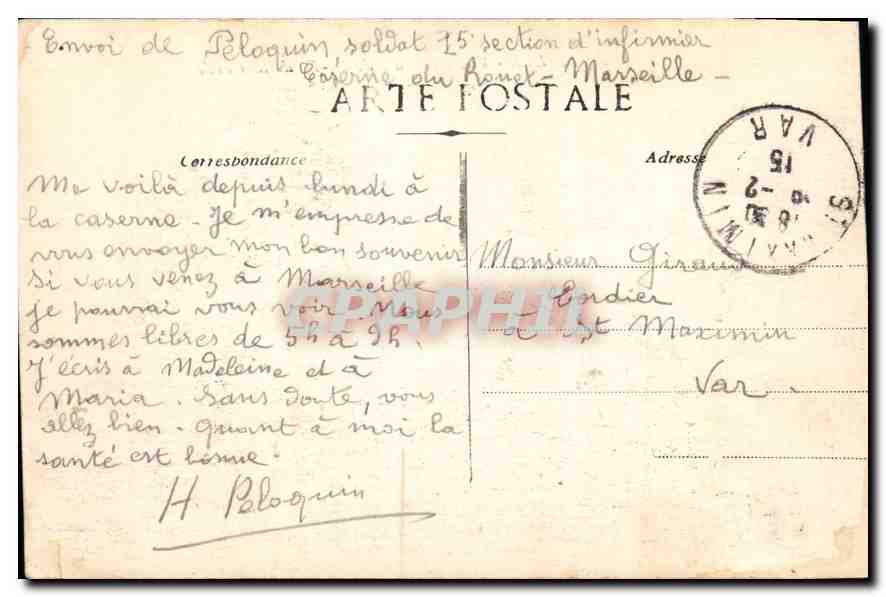 Envoi de Peloquin soldat 15e section d'infirmier
"Caserne" du Rouet - Marseille -
CARTE POSTALE
Correspondance
Adresse
Me voilà depuis lundi à
la caserne - Je m'empresse de
vous envoyer mon bon souvenir
Si vous venez à Marseille
je pourrai vous voir. Nous
sommes libres de 5h à 9h.
J'écris à Madeleine et à
Maria. Sans doute, vous
allez bien - quant à moi la
santé est bonne.
H. Peloquin
Monsieur Giraud
Cordier
à St Maximin
Var.
ST MAXIMIN
VAR
15
CPAPHIL